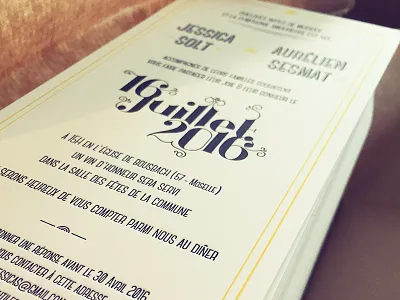 JESSICA
SOLT
AURÉLIEN
SESMAT
ACCOMPAGNÉS DE LEURS FAMILLES SOUHAITENT
VOUS FAIRE PARTAGER LEUR JOIE À LEUR
16
Juillet
2016
À 15H EN L'ÉGLISE DE ROUSBACH (57 - MOSELLE)
UN VIN D'HONNEUR SERA SERVI
DANS LA SALLE DES FÊTES DE LA COMMUNE
SERONS HEUREUX DE VOUS COMPTER PARMI NOUS AU DÎNER
ONNER UNE RÉPONSE AVANT LE 30 AVRIL 2016
OUS CONTACTER À CETTE ADRESSE